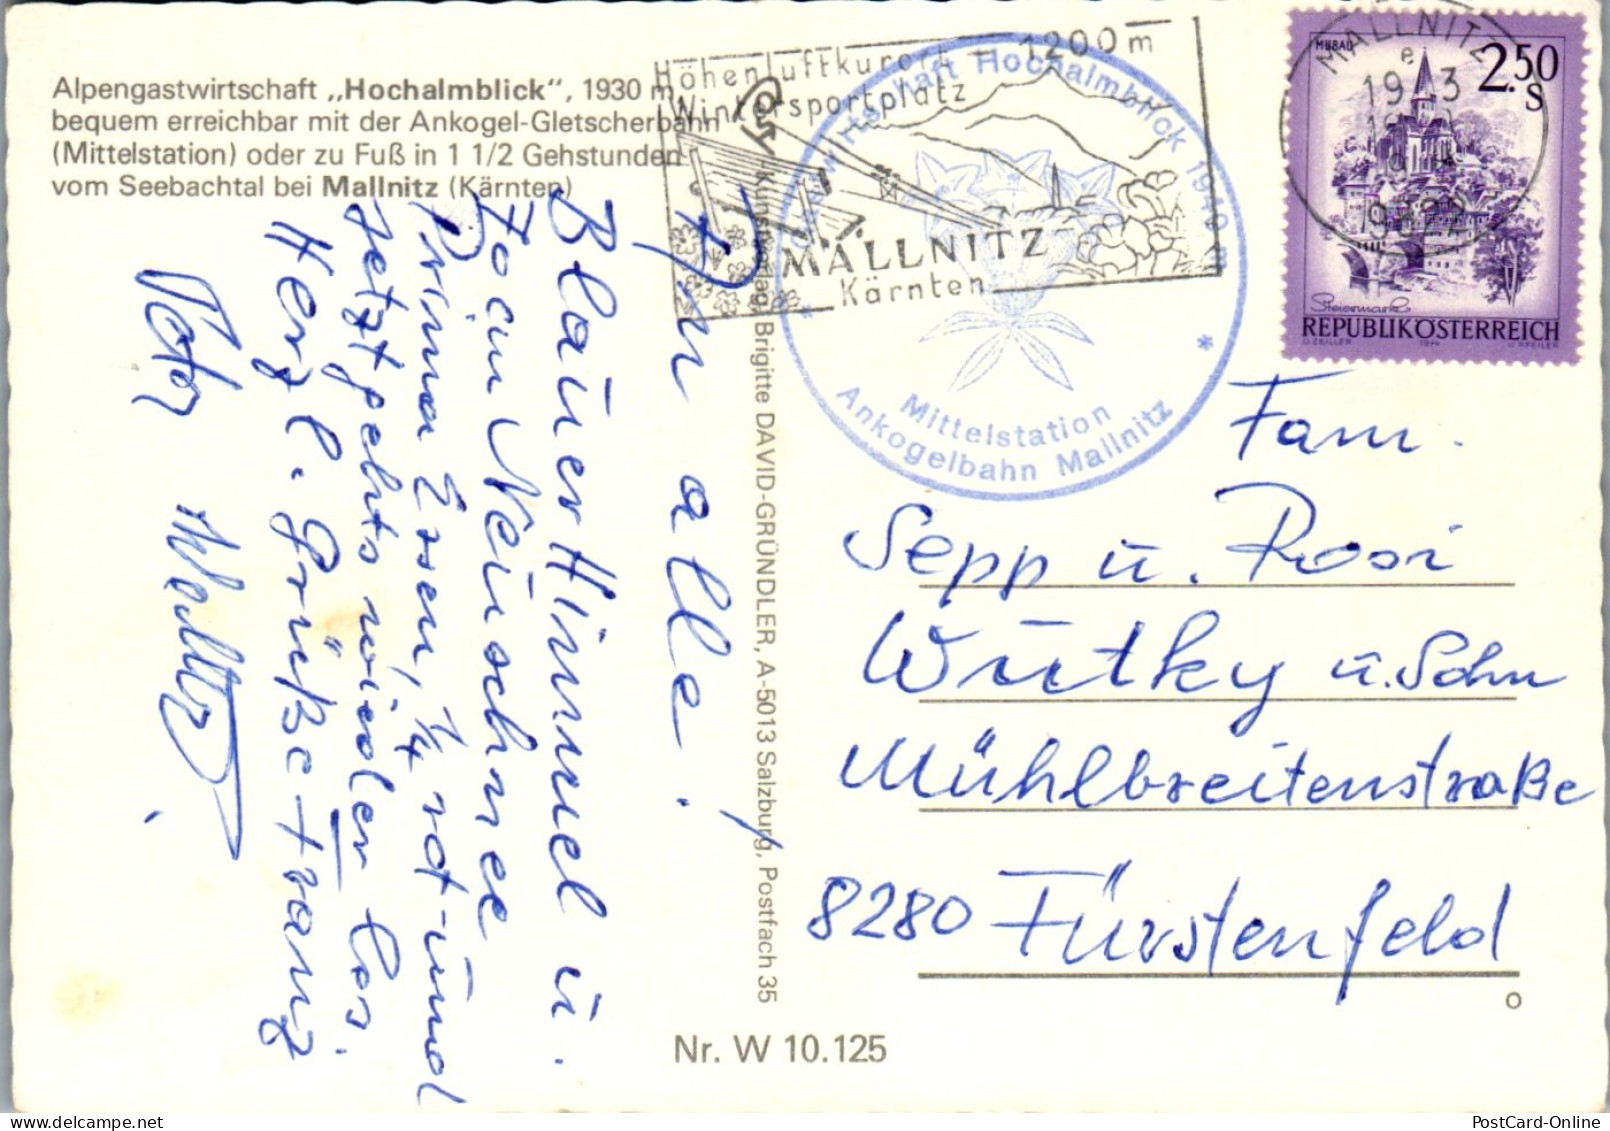 Alpengastwirtschaft „Hochalmblick“, 1930 m,
bequem erreichbar mit der Ankogel-Gletscherbahn
(Mittelstation) oder zu Fuß in 1 1/2 Gehstunden
vom Seebachtal bei Mallnitz (Kärnten)
Höhenluftkurort 1200m
Wintersportplatz
MALLNITZ
Kärnten
Hochalmblick 1940 m
Mittelstation
Ankogelbahn Mallnitz
MALLNITZ
e
9822
MURAU
2.50
S
Steiermark
REPUBLIK ÖSTERREICH
An alle!
Blauer Himmel u.
10 cm Neuschnee
Prima Essen, 1/4 rot-und
jetzt gehts wieder los.
Herzl. Grüße Franz
Walter
Brigitte DAVID-GRÜNDLER, A-5013 Salzburg, Postfach 35
Fam.
Sepp u. Rosi
Wutky u. Sohn
Mühlbreitenstraße
8280 Fürstenfeld
Nr. W 10.125
PostCard-Online